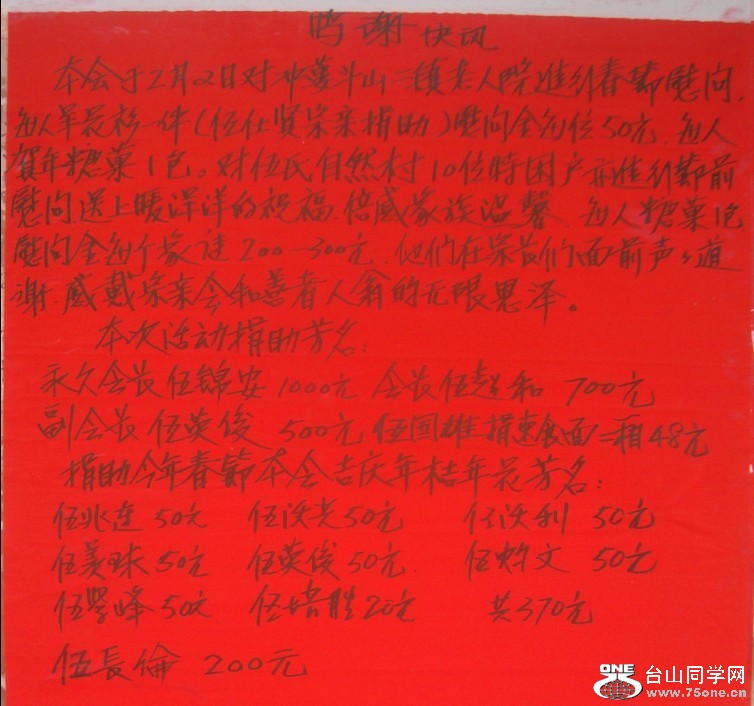 鸣谢快讯
本会于2月2日对冲蒌斗山二镇老人院进行春節慰问,
每人羊花衫一件(伍仕贤宗亲捐助)慰问金每位50元.每人
賀年糖菓1包。对伍氏自然村10位特困户亦進行節前
慰问送上暖洋洋的祝福.倍感家族温馨.每人糖菓1包
慰问金每个家庭200—300元.他们在宗長们面前声々道
谢.感戴宗亲会和善者人翁的无限恩泽。
本次活动捐助芳名:
永久会長伍锦安1000元 会長伍超和 700元
副会長伍英俊 500元 伍国雄捐速食面二箱48元
捐助今年春節本会吉庆年桔年花芳名:
伍兆连50元 伍汝光50元 伍汝利 50元
伍美珠50元 伍英俊50元. 伍灼文 50元
伍峰50元 伍培胜20元 共370元
伍長倫 200元
ONE 台山同学网
www.75one.cn